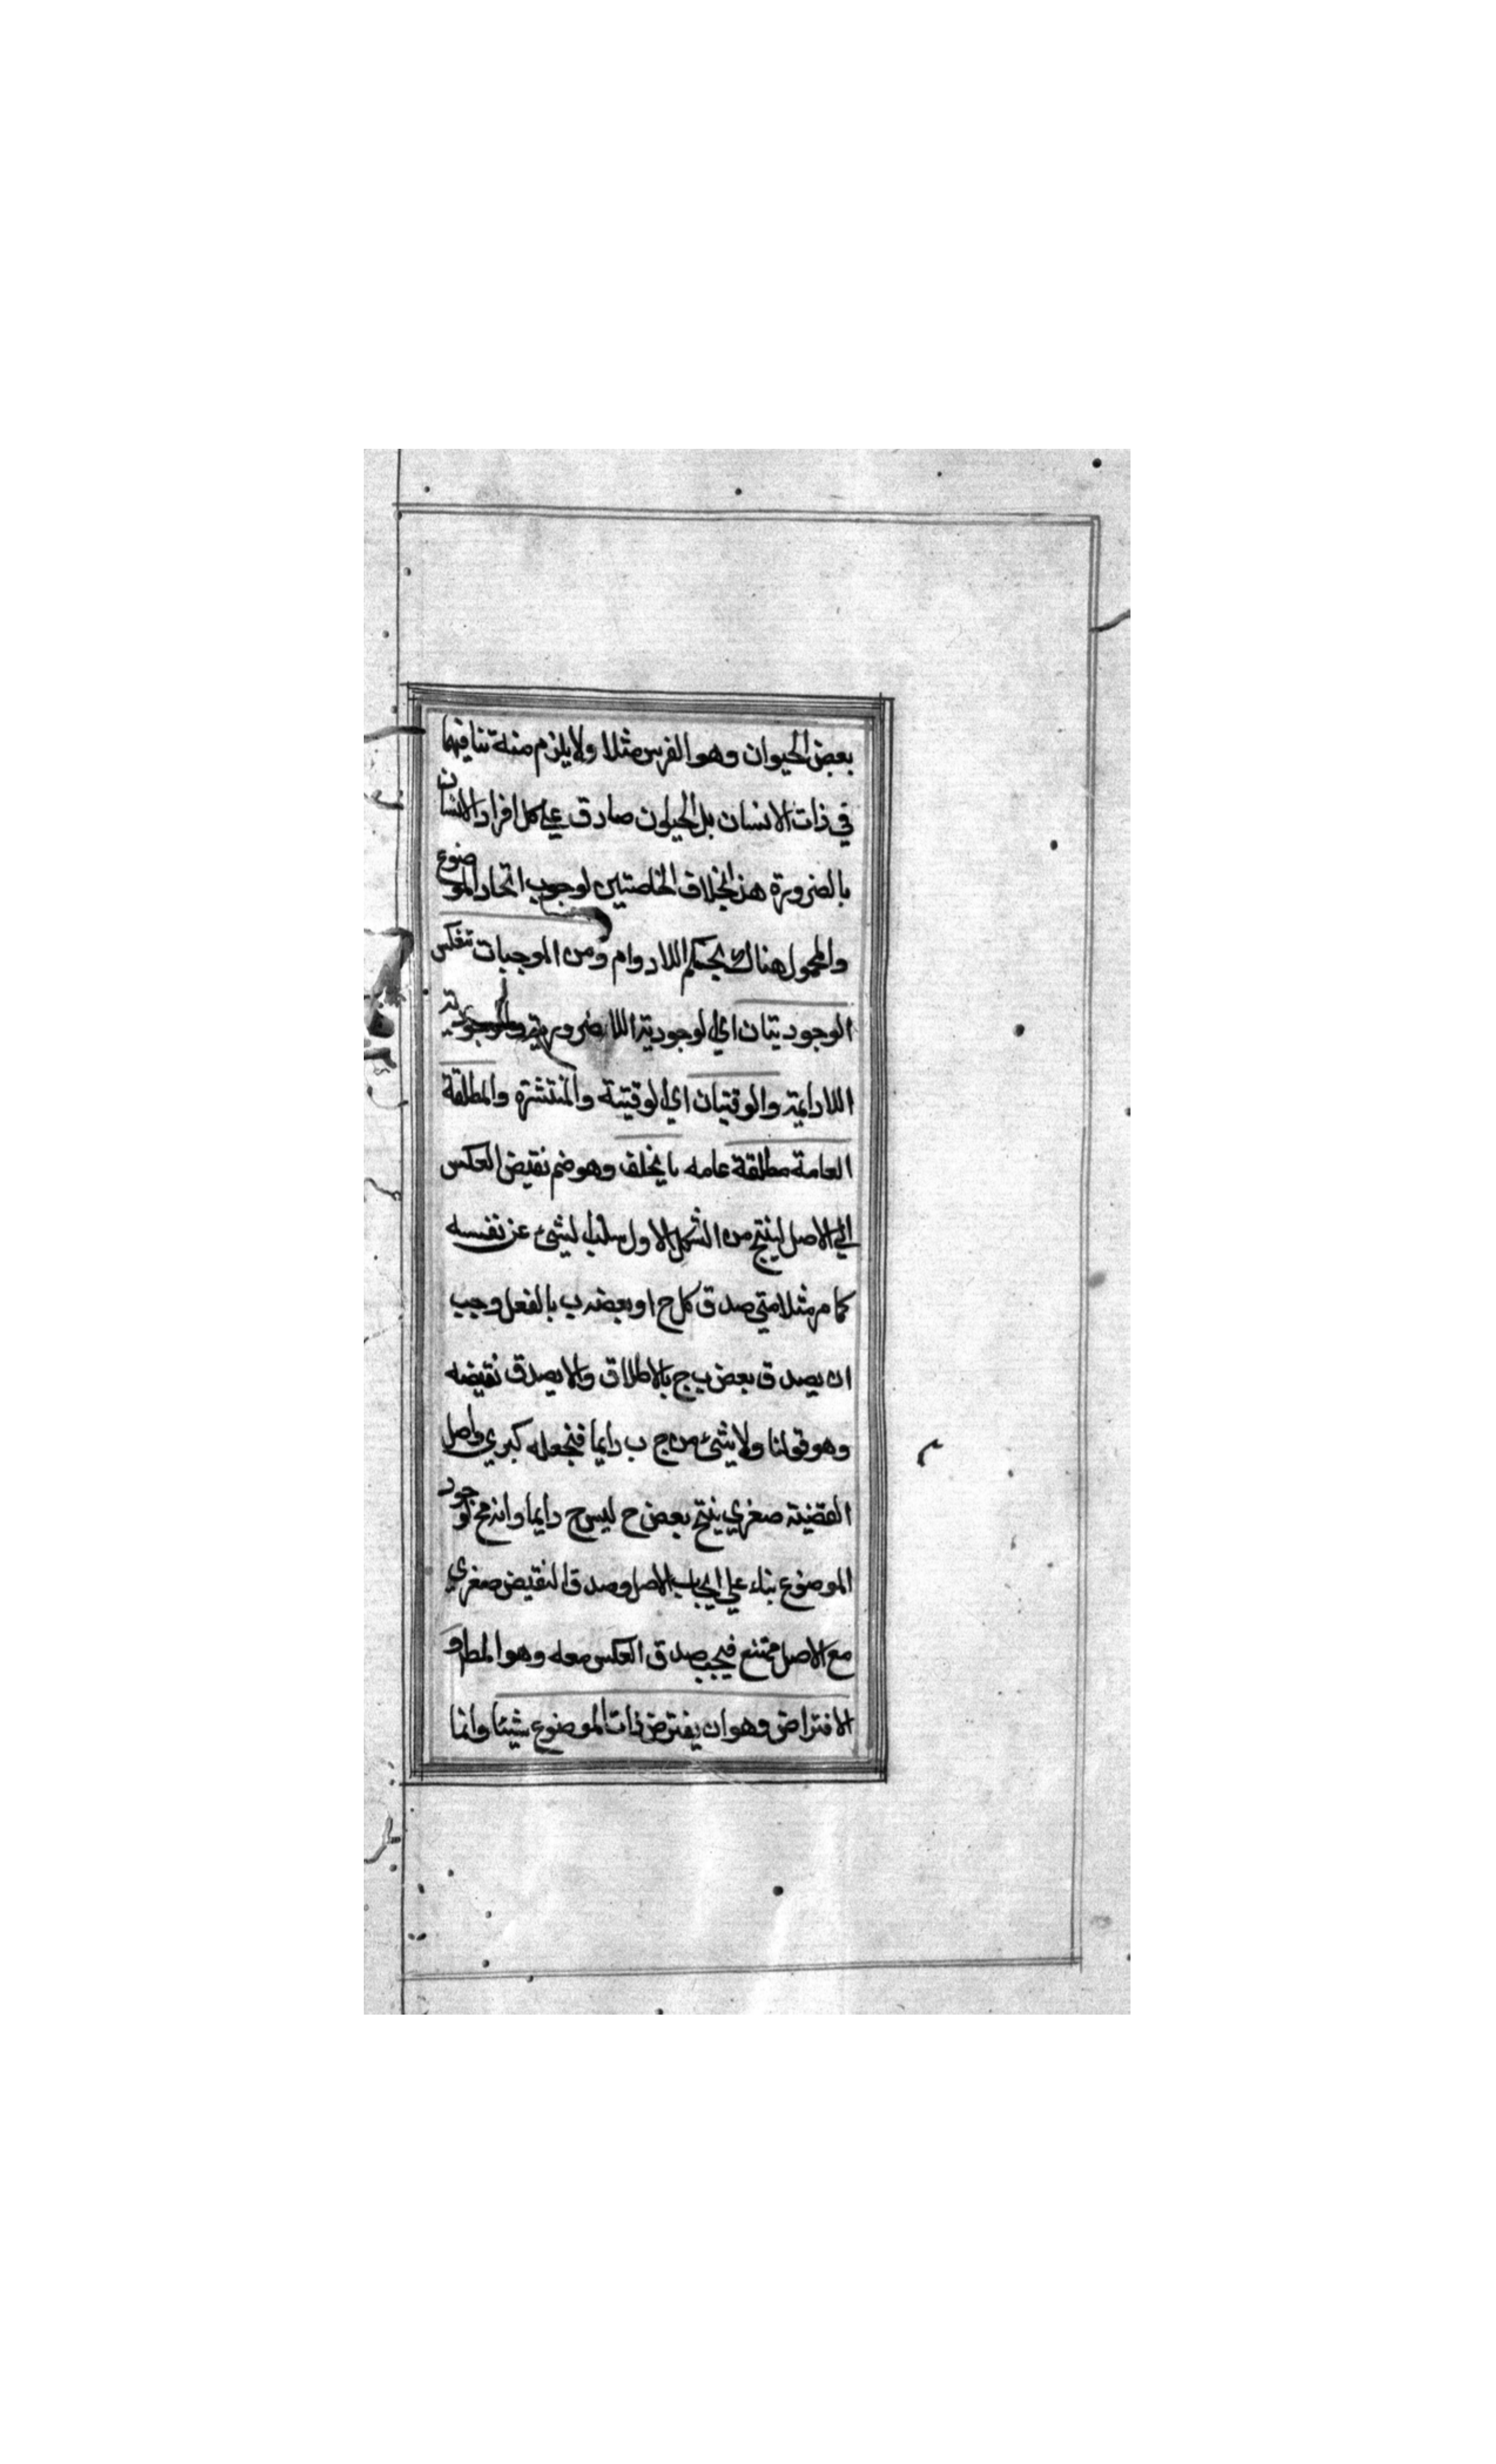 بعض الحيوان وهو الفرس مثلا ولا يلزم منه تنافيهما
في ذات الانسان بل الحيوان صادق علي كل افراد الانسان
بالضرورة هذا بخلاف الخاصتين لوجوب اتحاد الموضوع
والمحمول هناك بحكم اللادوام ومن الموجبات تنعكس
الوجوديتان اي الوجودية اللاضرورية والوجودية
اللادايمة والوقتيتان اي الوقتية والمنتشرة والمطلقة
العامة مطلقة عامه بالخلف وهو ضم نقيض العكس
الي الاصل لينتج من الشكل الاول سلب الشئ عن نفسه
كما مر مثلا متي صدق كل ج او بعضه ب بالفعل وجب
ان يصدق بعض ب ج بالاطلاق والا يصدق نقيضه
وهو قولنا ولا شئ من ج ب دايما فنجعله كبري واصل
القضية صغري ينتج بعض ج ليس ج دايما وانه مح لوجود
الموضوع بناء علي ايجاب الاصل وصدق النقيض صغري
مع الاصل ممتنع فيجب صدق العكس معه وهو المط و
الافتراض وهو ان يفترض ذات الموضوع شيئا وانما